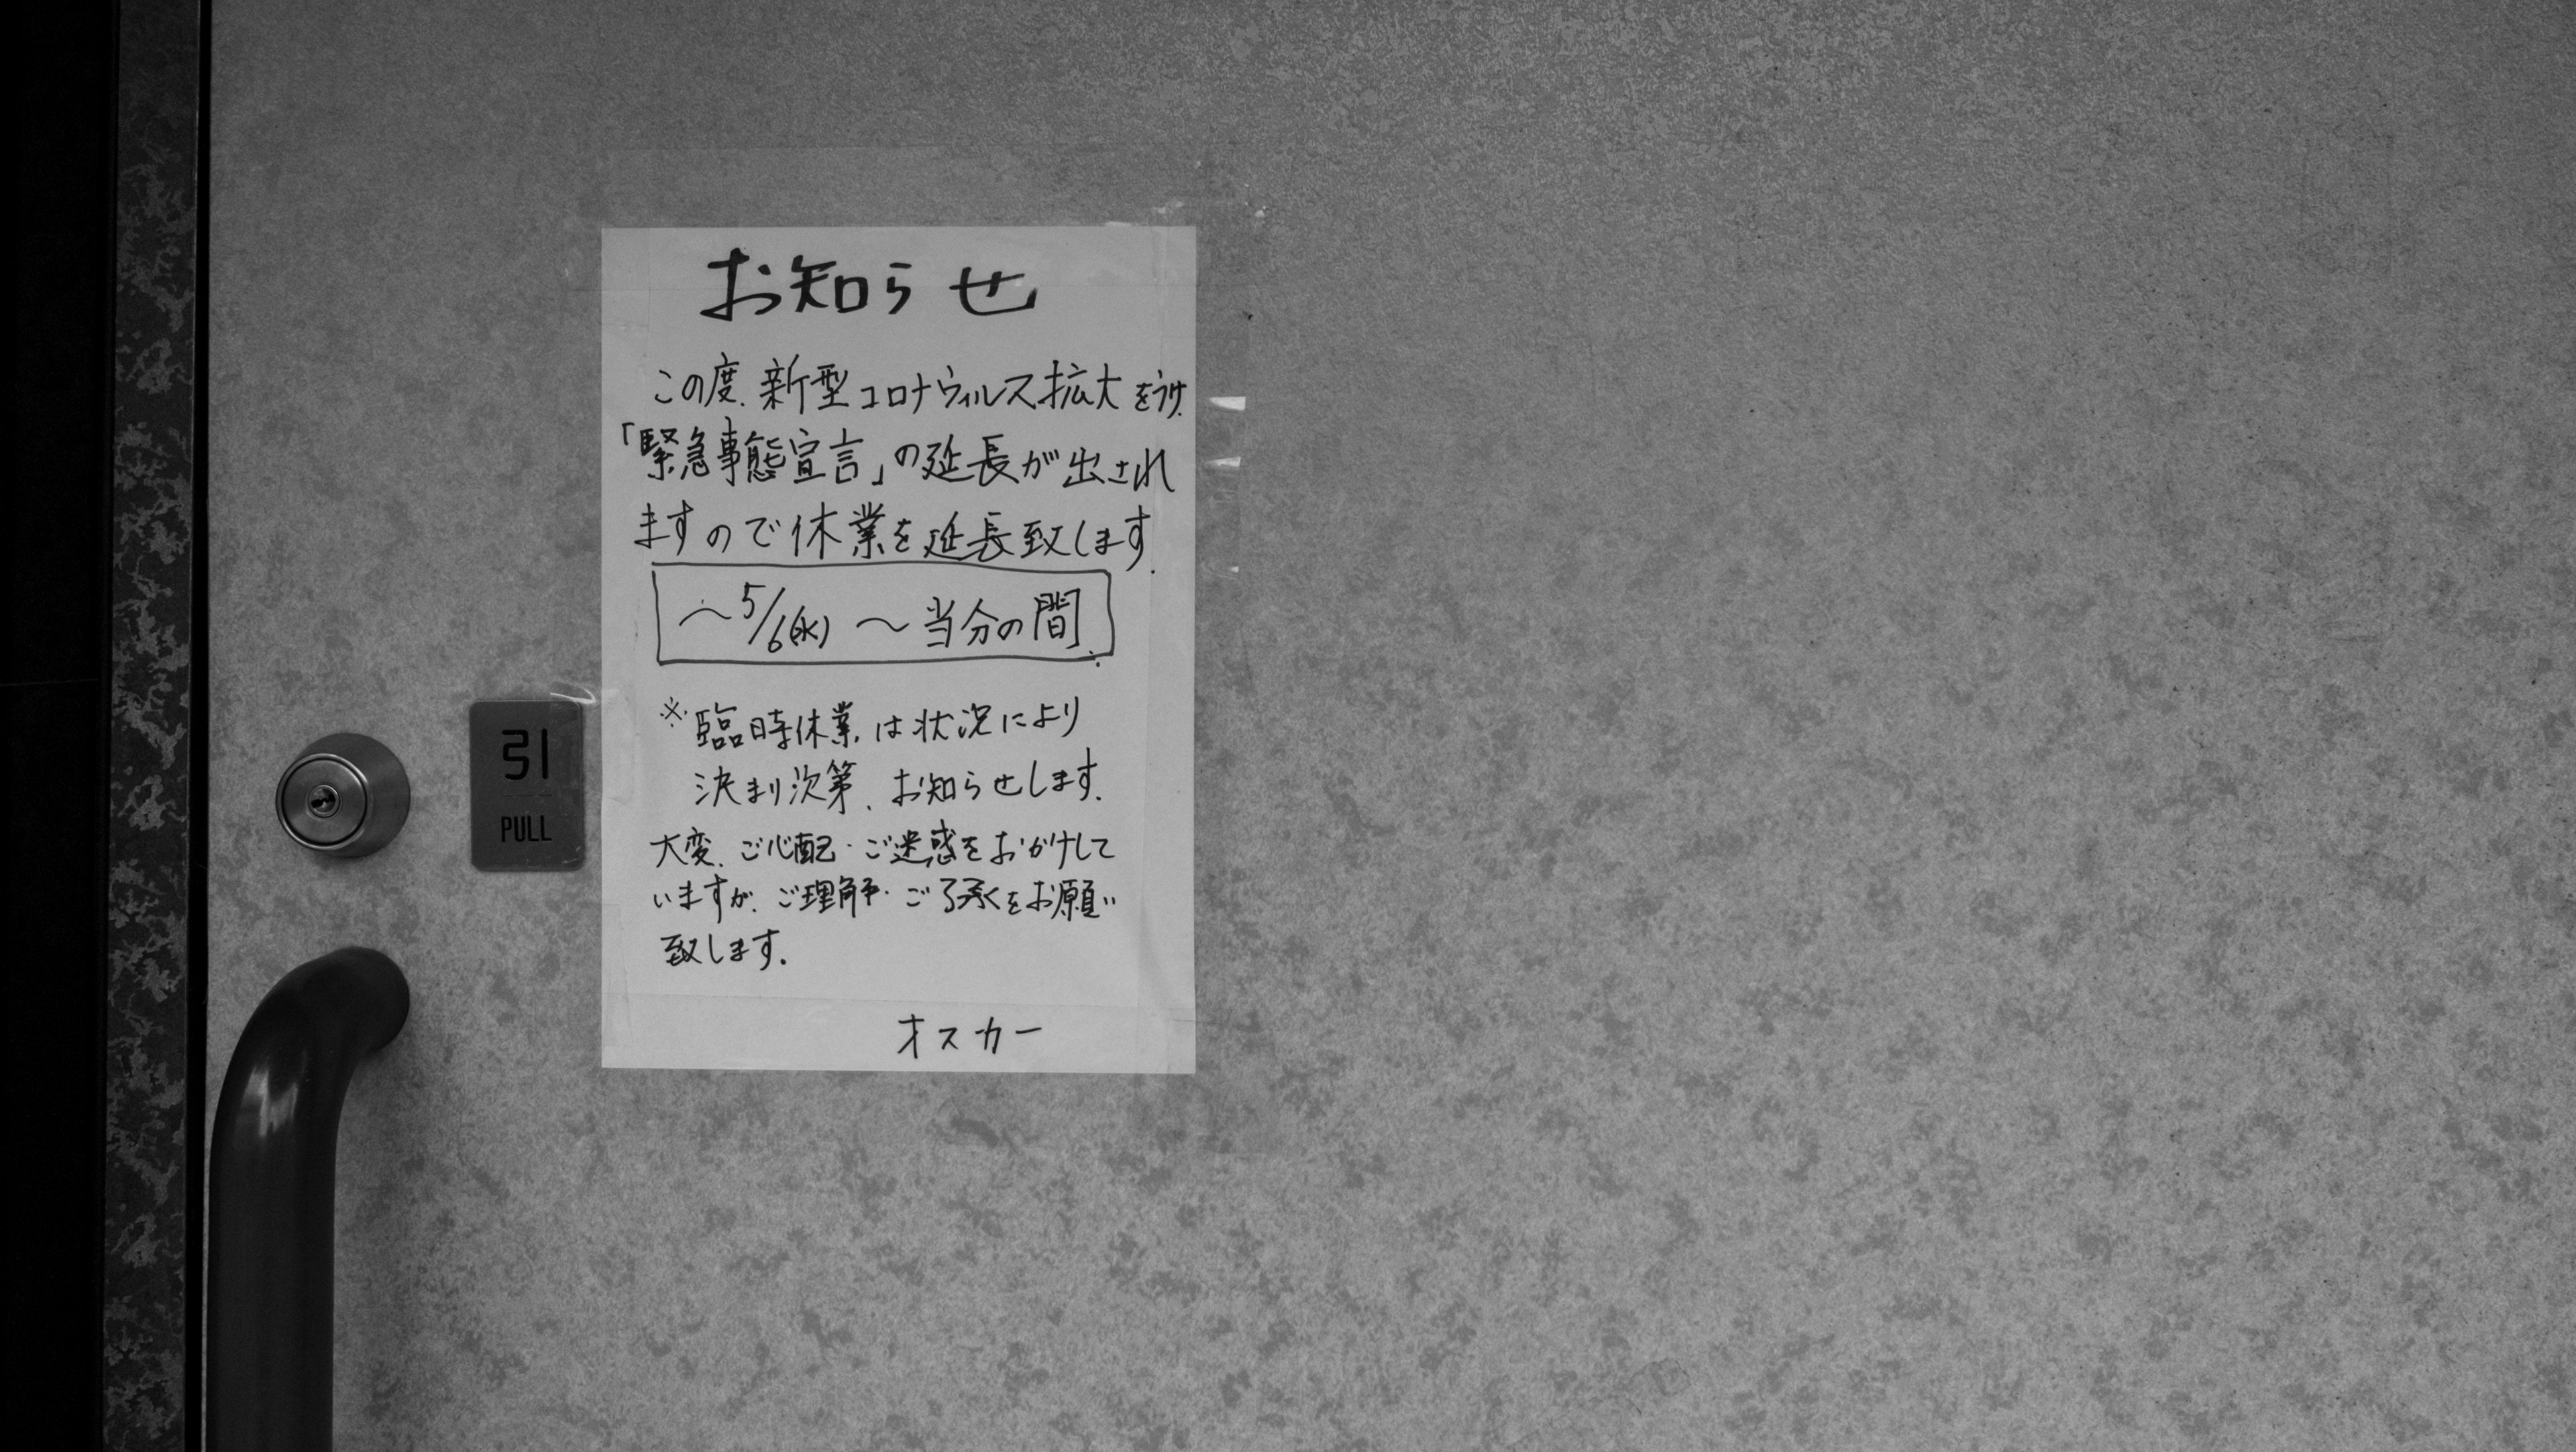 お知らせ
この度、新型コロナウィルス拡大をうけ、
「緊急事態宣言」の延長が出され
ますので休業を延長致します.
〜5/6(水) 〜当分の間.
※臨時休業は状況により
決まり次第、お知らせします.
大変、ご心配・ご迷惑をおかけして
いますが、ご理解・ご了承をお願い
致します.
オスカー
引
PULL